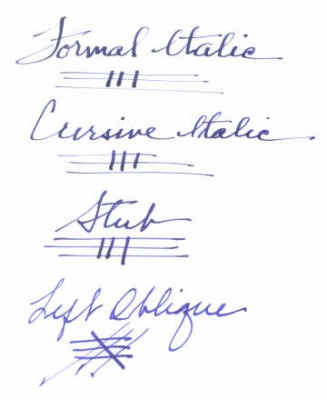 Formal Italic
Cursive Italic
Stub
Left Oblique